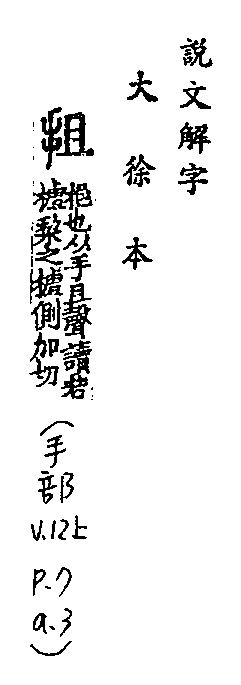 説文解字
大徐本
抯
挹也从手且聲讀若
樝棃之樝側加切
(手部
V.12上
P.7
a.3)